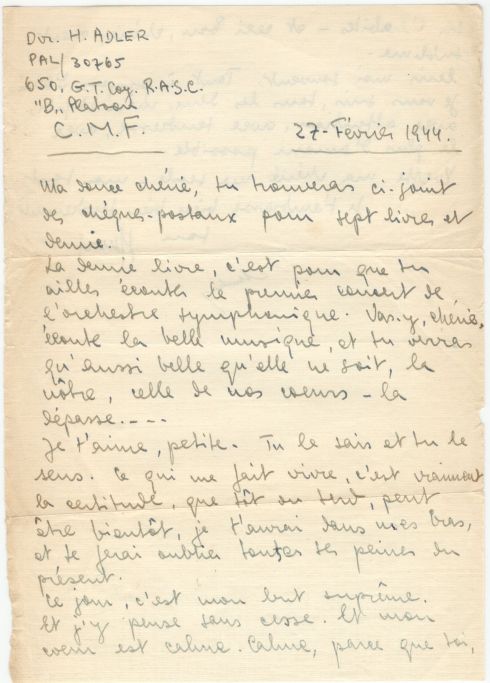 Dvr. H. ADLER
PAL/30765
650, G.T. Coy. R.A.S.C.
"B" Platoon
C.M.F. 27-Février 1944.
Ma douce chérie, tu trouveras ci-joint
des chèques-postaux pour sept livres et
demie.
La demie livre, c'est pour que tu
ailles écouter le premier concert de
l'orchestre symphonique. Vas-y, chérie,
écoute la belle musique, et tu verras
qu'aussi belle qu'elle ne soit, la
nôtre, celle de nos coeurs - la
dépasse.----
Je t'aime, petite. Tu le sais et tu le
sens. Ce qui me fait vivre, c'est vraiment
la certitude, que tôt ou tard, peut
être bientôt, je t'aurai dans mes bras,
et te ferai oublier toutes tes peines du
présent.
Ce jour, c'est mon but suprême.
Et j'y pense sans cesse. Et mon
coeur est calme. Calme, parce que toi,